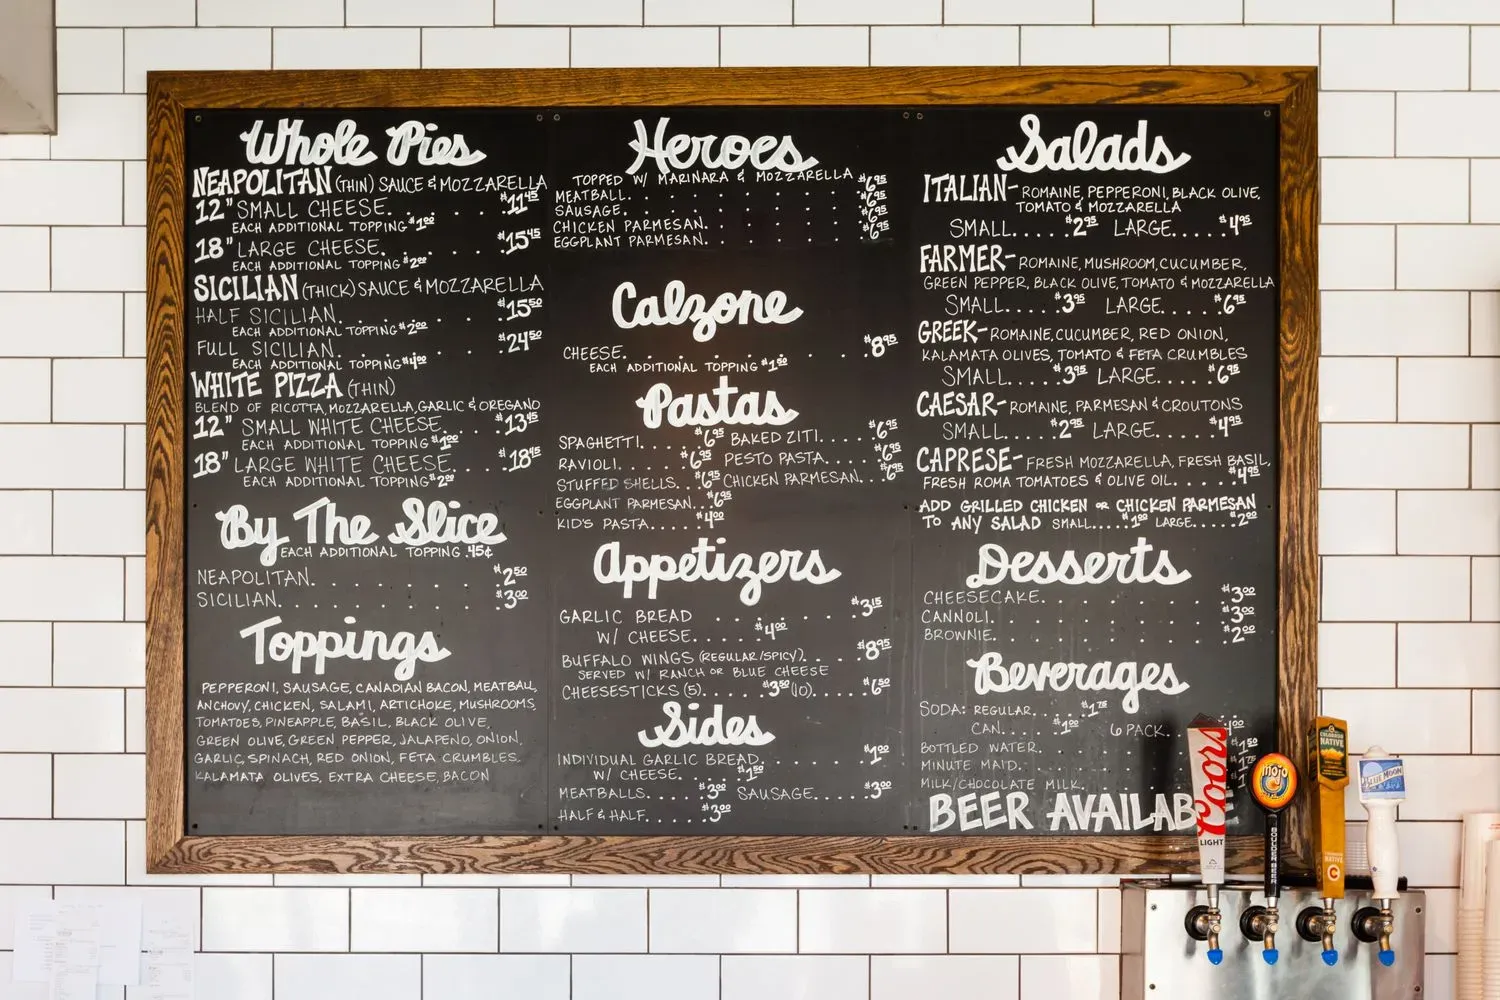 Whole Pies
NEAPOLITAN (THIN) SAUCE & MOZZARELLA
12" SMALL CHEESE. . . . . $11.45
EACH ADDITIONAL TOPPING $1.00
18" LARGE CHEESE. . . . . $15.45
EACH ADDITIONAL TOPPING $2.00
SICILIAN (THICK) SAUCE & MOZZARELLA
HALF SICILIAN. . . . . . $15.50
EACH ADDITIONAL TOPPING $2.00
FULL SICILIAN. . . . . . $24.50
EACH ADDITIONAL TOPPING $4.00
WHITE PIZZA (THIN)
BLEND OF RICOTTA, MOZZARELLA, GARLIC & OREGANO
12" SMALL WHITE CHEESE. . . $13.45
EACH ADDITIONAL TOPPING $1.00
18" LARGE WHITE CHEESE. . . $18.45
EACH ADDITIONAL TOPPING $2.00
By The Slice
EACH ADDITIONAL TOPPING .45¢
NEAPOLITAN. . . . . . . $2.50
SICILIAN. . . . . . . . $3.00
Toppings
PEPPERONI, SAUSAGE, CANADIAN BACON, MEATBALL,
ANCHOVY, CHICKEN, SALAMI, ARTICHOKE, MUSHROOMS,
TOMATOES, PINEAPPLE, BASIL, BLACK OLIVE,
GREEN OLIVE, GREEN PEPPER, JALAPENO, ONION,
GARLIC, SPINACH, RED ONION, FETA CRUMBLES,
KALAMATA OLIVES, EXTRA CHEESE, BACON
Heroes
TOPPED W/ MARINARA & MOZZARELLA
MEATBALL. . . . . . . $6.95
SAUSAGE. . . . . . . $6.95
CHICKEN PARMESAN. . . . . $6.95
EGGPLANT PARMESAN. . . . . $6.95
Calzone
CHEESE. . . . . . . . $8.95
EACH ADDITIONAL TOPPING $1.50
Pastas
SPAGHETTI. . . . $6.95 BAKED ZITI. . . . $6.95
RAVIOLI. . . . . $6.95 PESTO PASTA. . . . $6.95
STUFFED SHELLS. . . $6.95 CHICKEN PARMESAN. . . $6.95
EGGPLANT PARMESAN. . . $6.95
KID'S PASTA. . . . $4.00
Appetizers
GARLIC BREAD . . . . . $3.15
W/ CHEESE. . . . $4.00
BUFFALO WINGS (REGULAR/SPICY). . . . $8.95
SERVED W/ RANCH OR BLUE CHEESE
CHEESESTICKS (5). . . . . $3.50 (10). . . . . $6.50
Sides
INDIVIDUAL GARLIC BREAD. . . . . $1.00
W/ CHEESE. . . . $1.50
MEATBALLS. . . . . $3.00 SAUSAGE. . . . . $3.00
HALF & HALF. . . . . $3.00
Salads
ITALIAN- ROMAINE, PEPPERONI, BLACK OLIVE,
TOMATO & MOZZARELLA
SMALL. . . . . $2.95 LARGE. . . . . $4.95
FARMER- ROMAINE, MUSHROOM, CUCUMBER,
GREEN PEPPER, BLACK OLIVE, TOMATO & MOZZARELLA
SMALL. . . . . $3.95 LARGE. . . . . $6.95
GREEK- ROMAINE, CUCUMBER, RED ONION,
KALAMATA OLIVES, TOMATO & FETA CRUMBLES
SMALL. . . . . $3.95 LARGE. . . . . $6.95
CAESAR- ROMAINE, PARMESAN & CROUTONS
SMALL. . . . . $2.95 LARGE. . . . . $4.95
CAPRESE- FRESH MOZZARELLA, FRESH BASIL,
FRESH ROMA TOMATOES & OLIVE OIL. . . . . $4.95
ADD GRILLED CHICKEN OR CHICKEN PARMESAN
TO ANY SALAD SMALL. . . . $1.00 LARGE. . . . $2.00
Desserts
CHEESECAKE. . . . . . . $3.00
CANNOLI. . . . . . . . $3.00
BROWNIE. . . . . . . . $2.00
Beverages
SODA: REGULAR. . . . . $1.75
CAN. . . . . $1.00 6 PACK. . . .
BOTTLED WATER. . . . . $1.50
MINUTE MAID. . . . .
MILK/CHOCOLATE MILK. . . .
BEER AVAILAB
Coors
LIGHT
mojo
BOULDER BEER
COLORADO
NATIVE
BLUE MOON